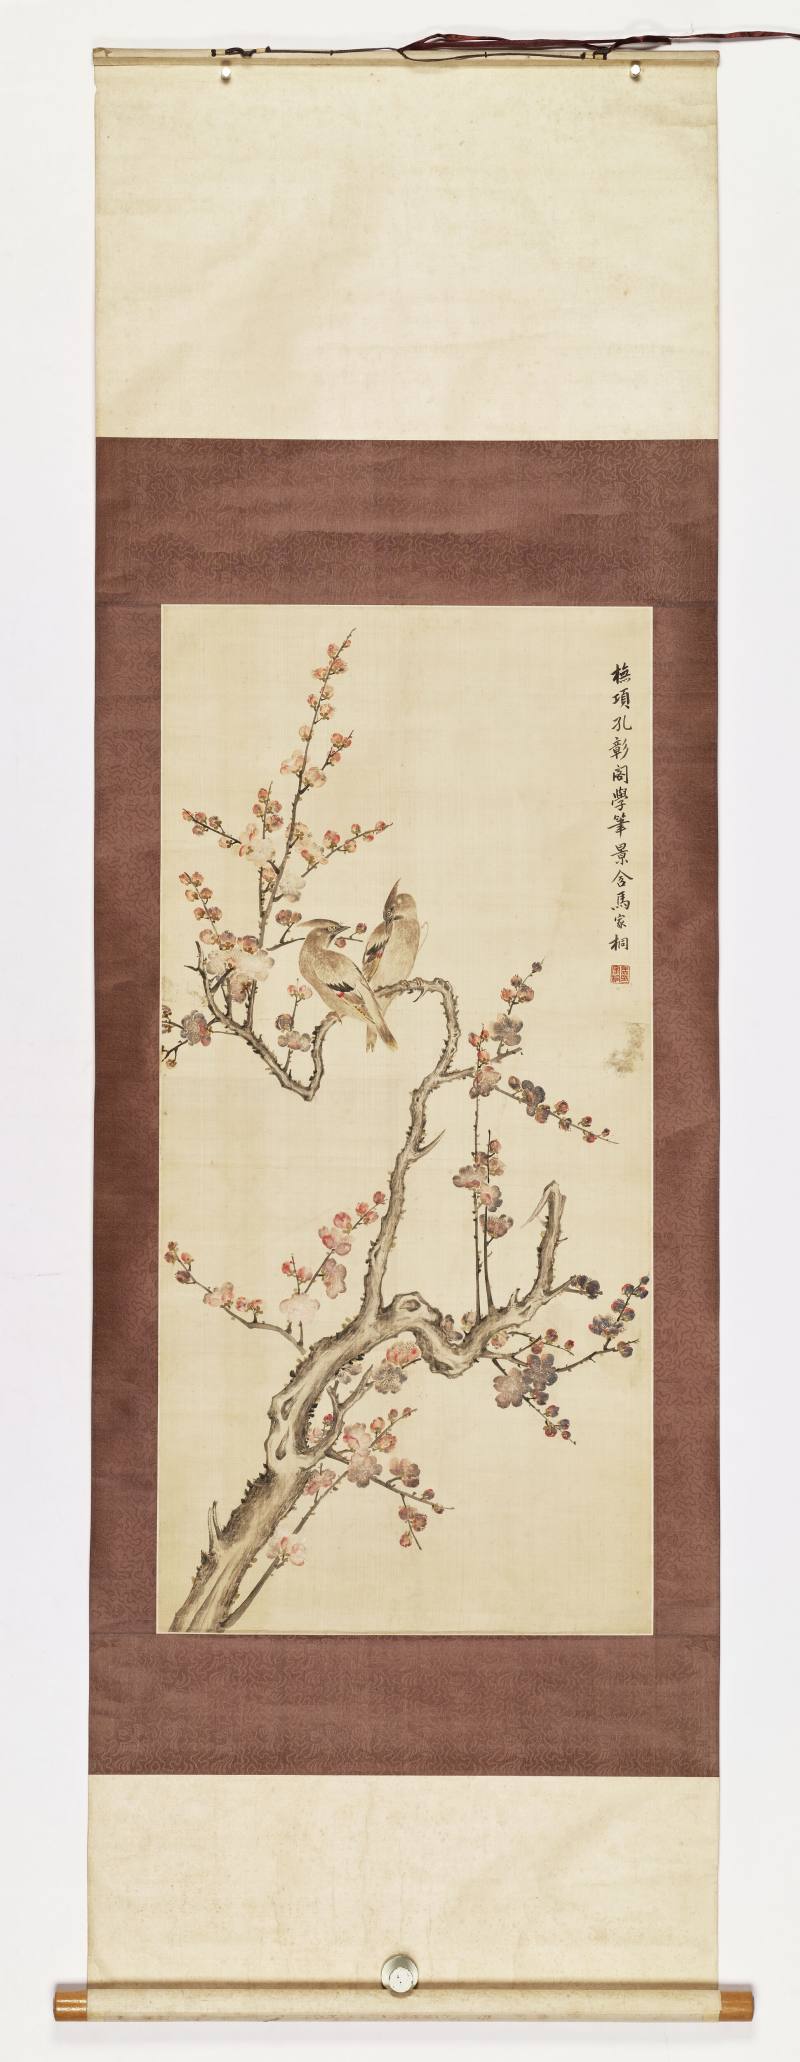 橅項孔彰閣學筆景含馬家桐